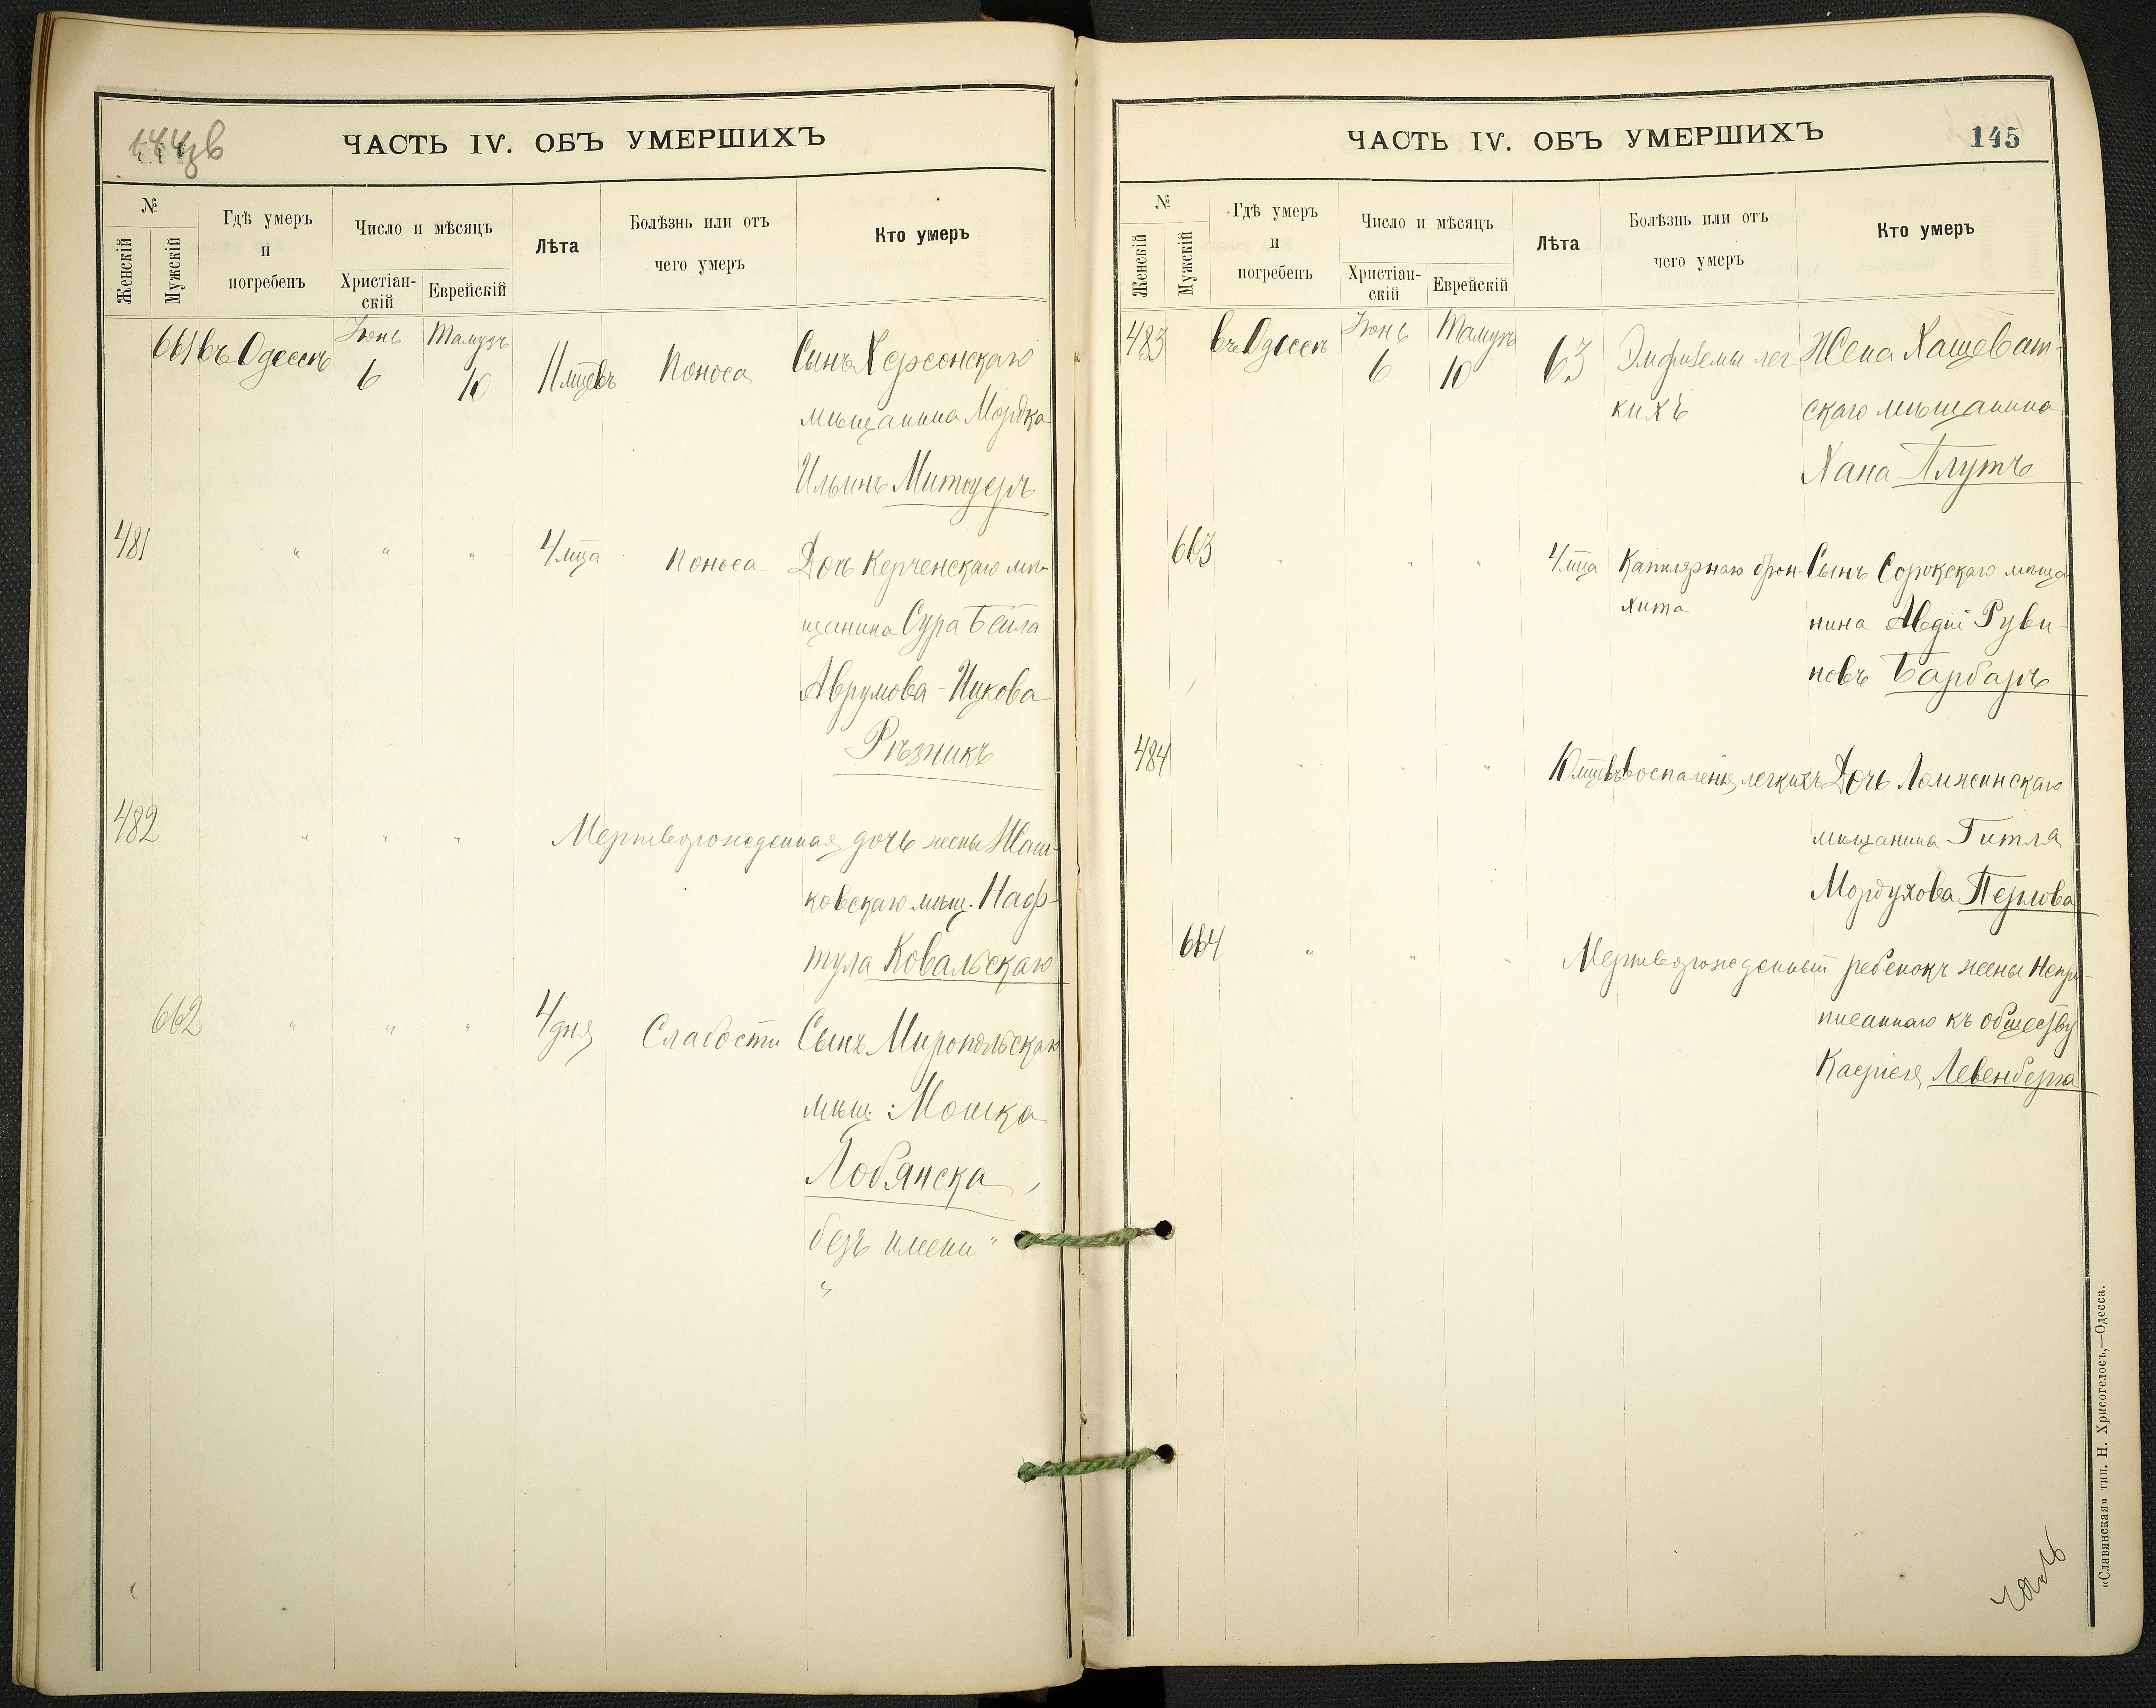 144 об
ЧАСТЬ IV. ОБЪ УМЕРШИХЪ
№
Женскій
Мужскій
Гдѣ умеръ
и
погребенъ
Число и мѣсяцъ
Христіан-
скій
Еврейскій
Лѣта
Болѣзнь или отъ
чего умеръ
Кто умеръ
661 въ Одессѣ Іюнь 6 Тамузъ 10 11 мцевъ Поноса Сынъ Херсонскаго
мѣщанина Мордко
Ильинъ
481 " " " 4 мца Поноса Дочь Керченскаго мѣ-
щанина Сура Бейла
Аврумова-Ицкова
Рѣзникъ
482 " " " Мертворожденная дочь жены Жаш-
ковскаго мѣщ. Наф-
тула Ковальскаго
662 " " " 4 дня Слабости Сынъ Миропольскаго
мѣщ. Мошка
Лобянска,
безъ имени "
"
ЧАСТЬ IV. ОБЪ УМЕРШИХЪ
145
№
Женскій
Мужскій
Гдѣ умеръ
и
погребенъ
Число и мѣсяцъ
Христіан-
скій
Еврейскій
Лѣта
Болѣзнь или отъ
чего умеръ
Кто умеръ
483 въ Одессѣ Іюнь 6 Тамузъ 10 63 Эмфиземы лег Жена Хащеват-
кихъ скаго мѣщанина
Хана Плутъ
663 " " " 4 мца Капилярнаго брон- Сынъ Сорокскаго мѣща
хита нина Авдій Руви-
новъ Барбаръ
484 " " " 10 мцевъ воспаленія легкихъ Дочь Ломжинскаго
мѣщанина Гитля
Мордухова Перлова
664 " " " Мертворожденный ребенокъ жены Непри-
писаннаго къ обществу
Касріеля Левенберга
«Славянская» тип. Н. Хрисогелосъ,—Одесса.